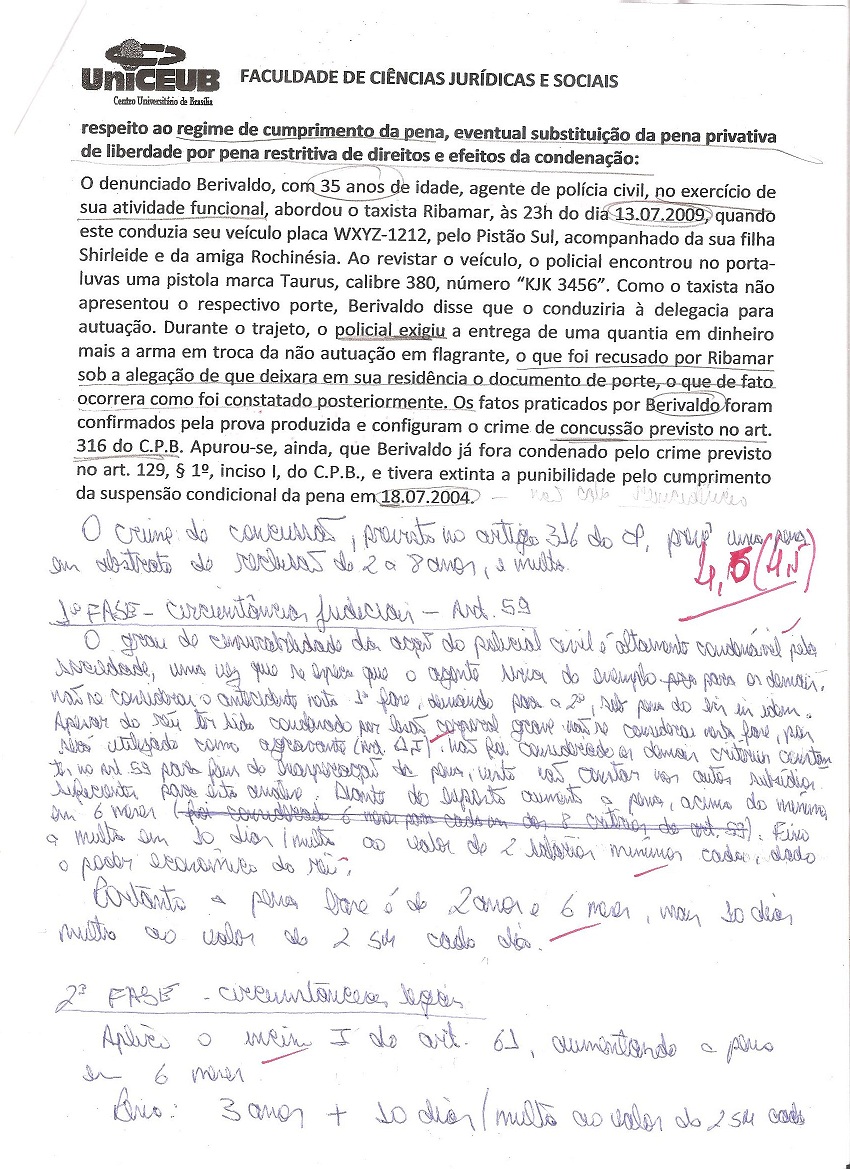 UniCEUB
Centro Universitário de Brasília
FACULDADE DE CIÊNCIAS JURÍDICAS E SOCIAIS
respeito ao regime de cumprimento da pena, eventual substituição da pena privativa
de liberdade por pena restritiva de direitos e efeitos da condenação:
O denunciado Berivaldo, com 35 anos de idade, agente de polícia civil, no exercício de
sua atividade funcional, abordou o taxista Ribamar, às 23h do dia 13.07.2009, quando
este conduzia seu veículo placa WXYZ-1212, pelo Pistão Sul, acompanhado da sua filha
Shirleide e da amiga Rochinésia. Ao revistar o veículo, o policial encontrou no porta-
luvas uma pistola marca Taurus, calibre 380, número “KJK 3456”. Como o taxista não
apresentou o respectivo porte, Berivaldo disse que o conduziria à delegacia para
autuação. Durante o trajeto, o policial exigiu a entrega de uma quantia em dinheiro
mais a arma em troca da não autuação em flagrante, o que foi recusado por Ribamar
sob a alegação de que deixara em sua residência o documento de porte, o que de fato
ocorrera como foi constatado posteriormente. Os fatos praticados por Berivaldo foram
confirmados pela prova produzida e configuram o crime de concussão previsto no art.
316 do C.P.B. Apurou-se, ainda, que Berivaldo já fora condenado pelo crime previsto
no art. 129, § 1º, inciso I, do C.P.B., e tivera extinta a punibilidade pelo cumprimento
da suspensão condicional da pena em 18.07.2004. – não
O crime de concussão, previsto no artigo 316 do CP, prevê uma pena
em abstrato de reclusão de 2 a 8 anos, e multa.
4,5 (4,5)
1ª FASE – circunstâncias judiciais – Art. 59
O grau de censurabilidade da ação do policial civil é altamente condenável pela
sociedade, uma vez que se espera que o agente sirva de exemplo para os demais.
não se considerou o antecedente nesta 1ª fase, deixando para a 2ª, sob pena do bis in idem.
Apesar do réu ter sido condenado por lesão corporal grave não se considerou nesta fase, pois
será utilizado como agravante (Art. 61, I). não foi considerado os demais critérios
no art. 59 para fins de da pena, visto não constar nos autos subsídios
suficientes para esta análise. Diante do exposto aumento a pena, acima do mínimo
em 6 meses (foi considerado 6 meses para cada um dos 8 critérios do art. 59). Fixo
a multa em 10 dias/multa ao valor de 2 salários mínimos cada, dado
o poder econômico do réu.
Portanto a pena base é de 2 anos e 6 meses, mais 10 dias
multa ao valor de 2 SM cada dia.
2ª FASE – circunstâncias legais
Aplico o inciso I do art. 61, aumentando a pena
em 6 meses
Pena: 3 anos + 10 dias/multa ao valor de 2 SM cada